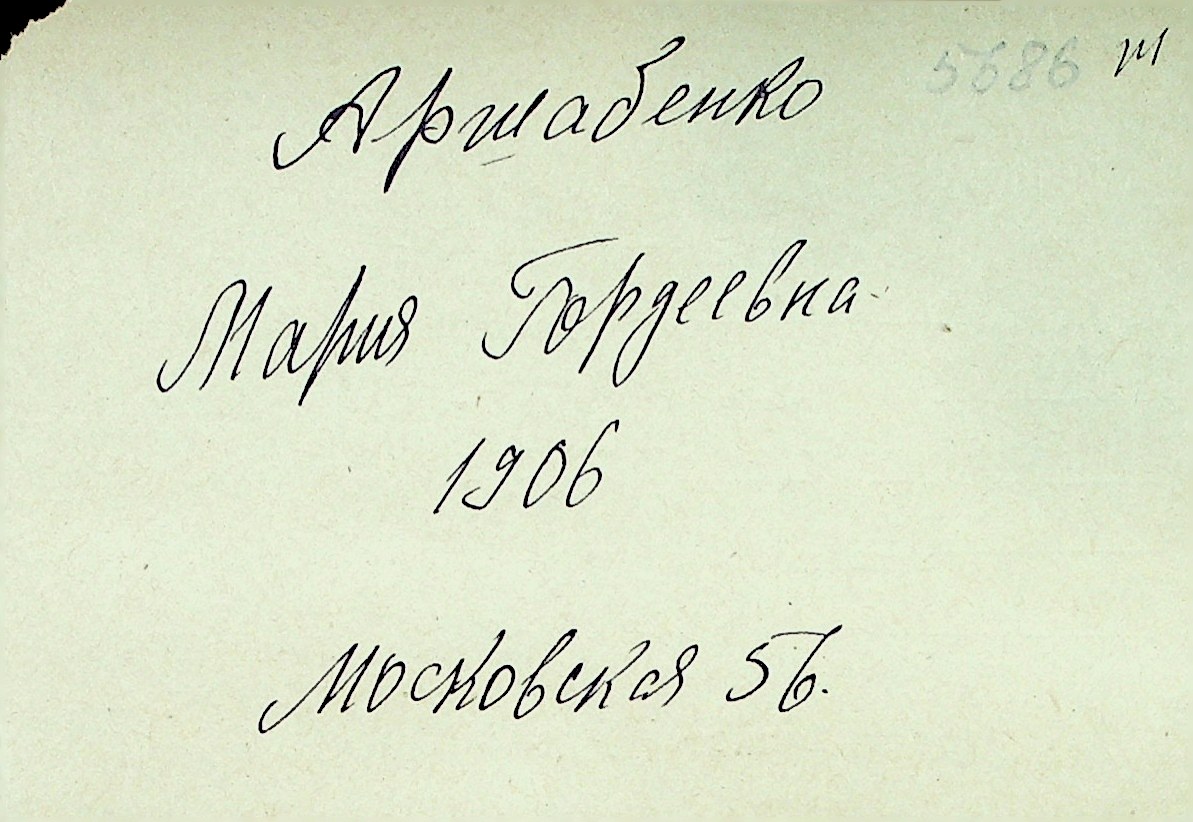 5686
Аршабенко
Мария Гордеевна
1906
Московская 56.